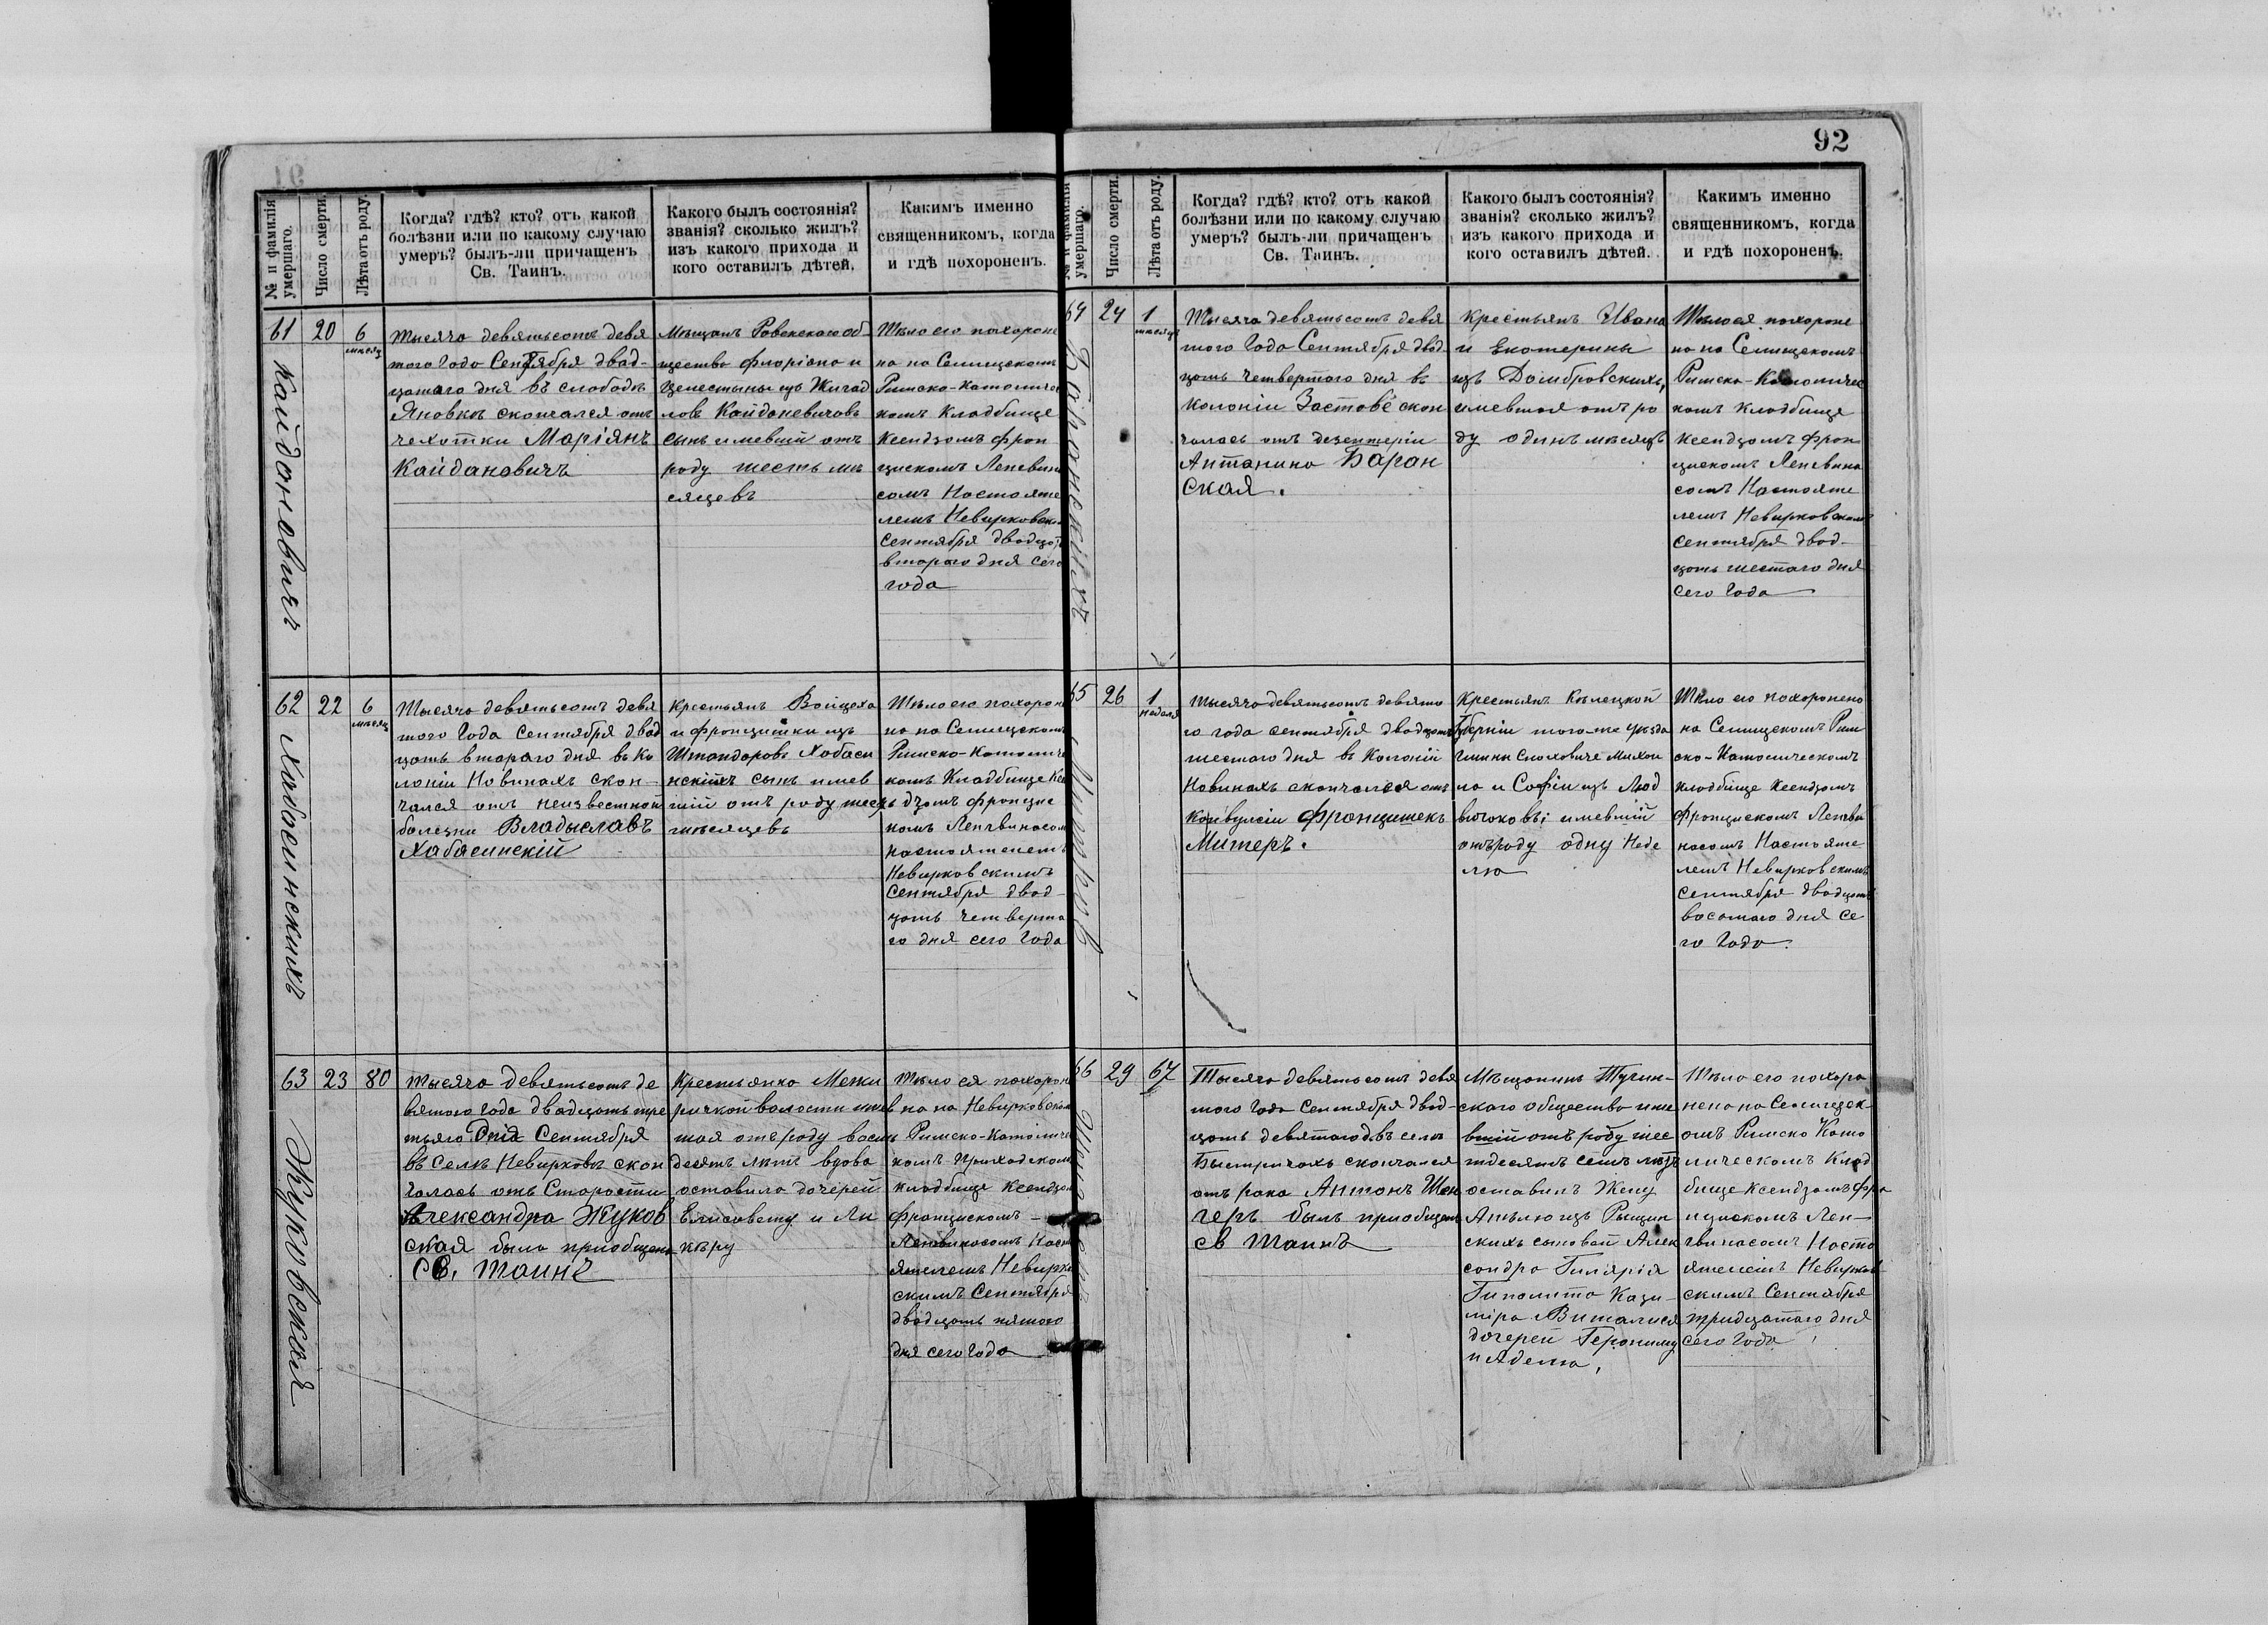 92
№ и фамилія умершаго.
Число смерти.
Лѣта отъ роду.
Когда? гдѣ? кто? отъ какой
болѣзни или по какому случаю
умеръ? былъ-ли причащенъ
Св. Таинъ.
Какого былъ состоянія?
званія? сколько жилъ?
изъ какого прихода и
кого оставилъ дѣтей.
Какимъ именно
священникомъ, когда
и гдѣ похороненъ.
61
20
6
мѣсяц
Кайдановичъ
Тысяча девятьсотъ девя
того Года Сентября двад-
цатаго дня въ слободѣ
Яновкѣ скончался отъ
чехотки Маріянъ
Кайдановичъ
Мѣщанъ Ровенскаго об-
щества Флоріана и
Целестыны изъ Жигад
ловъ Кайдановичовъ
сынъ имевшій отъ
роду шесть мѣ
сяцевъ
Тѣло его похороне
на на Селищскомъ
Римско-Католичес
комъ Кладбище
Ксендзомъ Фран
цискомъ Ленвина
сомъ Настояте
лемъ Невирковски
Сентября двадцать
втораго дня сего
года
62
22
6
мѣсяц
Хабасинскихъ
Тысяча девятьсотъ девя
того Года Сентября двад
цать втораго дня въ Ко
лоніи Новинахъ скон-
чался отъ неизвестной
болезни Владыславъ
Хабасинскій
Крестьянъ Войцеха
и Францишки изъ
Штандоровъ Хабаси
нскихъ сынъ имев
шій отъ роду шесть
мѣсяцевъ
Тѣло его похороне
на на Селищскомъ
Римско-Католиче
комъ Кладбище Ксе
дзомъ Францис
комъ Ленвинасом
настоятелемъ
Невирковскимъ
Сентября двад-
цать четверта
го дня сего Года
63
23
80
Жуковская
Тысяча девятьсотъ де
вятого года двадцать тре
тьяго Дня Сентября
въ Селѣ Невирковѣ скон
чалась отъ Старости
Александра Жуков
ская была приобщена
Св. Таинъ
Крестьянка Межи
ричкой волости имев
шая отъ роду восемь
десятъ лѣтъ вдова
оставила дочерей
Елисавету и Ли
кѣру
Тѣло ея похорон
на на Невирковском
Римско-Католиче
комъ Приходском
кладбище Ксендзом
Францискомъ
Ленвинасомъ Наст
ятелемъ Невирко
скимъ Сентября
двадцать пятого
дня сего Года
№ и фамилія умершаго.
Число смерти.
Лѣта отъ роду.
Когда? гдѣ? кто? отъ какой
болѣзни или по какому случаю
умеръ? былъ-ли причащенъ
Св. Таинъ.
Какого былъ состоянія?
званія? сколько жилъ?
изъ какого прихода и
кого оставилъ дѣтей.
Какимъ именно
священникомъ, когда
и гдѣ похороненъ.
64
24
1
мѣсяцъ
Тысяча девятьсотъ девя
того Года Сентября двад
цать четвертого дня въ
Колоніи Заставе скон
чалась отъ дезентеріи
Антанина Баран
ская.
Крестьянъ Ивана
и Екатерины
изъ Домбровскихъ,
имевшая отъ ро
ду одинъ мѣсяцъ
Тѣло ея похороне
на на Селищскомъ
Римско-Католичес
комъ Кладбище
Ксендзомъ Фран
цискомъ Ленвина
сомъ Настояте
лемъ Невирковским
Сентября двад-
цать шестаго дня
Сего Года
65
26
1
неделя
Тысяча девятьсотъ девято
го года Сентября двадцать
шестаго дня въ Колоніи
Новинахъ скончался отъ
Конвулсіи Францишекъ
Митеръ.
Крестьянъ Кѣлецкой
Губерніи того-же уѣзда
Гмины Слаховиче Михаи
ла и Софіи изъ Люд
виговъ имевшій
отъ роду одну Неде
лю
Тѣло его похоронено
на Селищскомъ Рим
ско-Католическомъ
кладбище Ксендзомъ
Францискомъ Ленви
насомъ Настояте
лемъ Невирковскимъ
Сентября двадцать
восьмаго дня се
го Года.
66
29
67
Тысяча девятьсотъ девя
того Года Сентября двад-
цать девятого д. въ селѣ
Быстричахъ скончался
отъ рака Антонъ Шен
геръ былъ приобщенъ
св Таинъ
Мѣщанинъ Тучин-
скаго общества име
вшій отъ роду шес
тдесятъ семъ лѣтъ
оставилъ Жену
Амѣлю изъ Рыщин
скихъ сыновей Алек
сандра Гилярія
Гиполита Кази-
міра Виталиса
дочерей Геронимy
и Аделю,
Тѣло его похоро
нено на Селищск
омъ Римско Като
лическомъ Клад
бище Ксендзомъ Фра
нцискомъ Лен-
гвинасомъ Насто
ятелемъ Невирков
скимъ Сентября
тридцатаго дня
сего Года